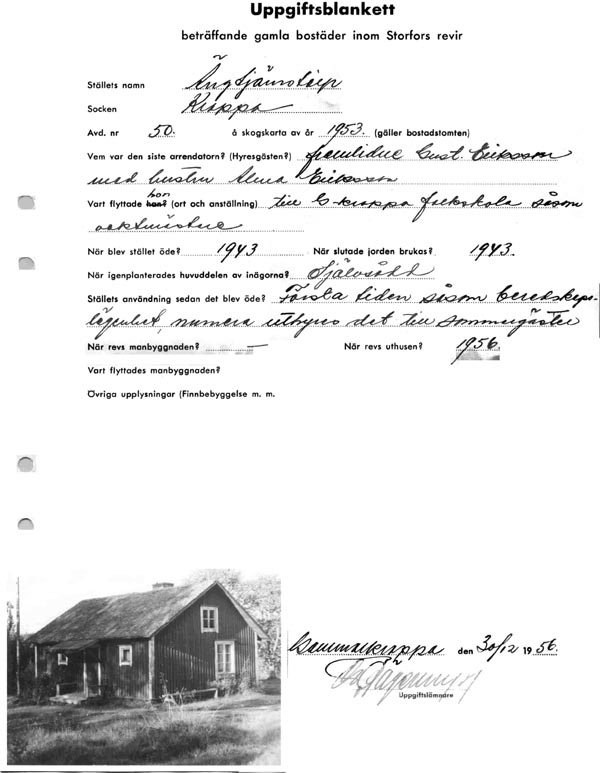 Uppgiftsblankett
beträffande gamla bostäder inom Storfors revir
Ställets namn Ängtjärnstorp
Socken Kroppa
Avd. nr 50. å skogskarta av år 1953. (gäller bostadstomten)
Vem var den siste arrendatorn? (Hyresgästen?) framlidne Gust. Eriksson
med hustru Alma Eriksson
hon
Vart flyttade han? (ort och anställning) till G-kroppa folkskola såsom
vaktmästare
När blev stället öde? 1943 När slutade jorden brukas? 1943.
När igenplanterades huvuddelen av inägorna? Självsådd
Ställets användning sedan det blev öde? Första tiden såsom beredskaps-
lägenhet, numera uthyres det till sommargäster
När revs manbyggnaden? — När revs uthusen? 1956.
Vart flyttades manbyggnaden?
Övriga upplysningar (Finnbebyggelse m. m.
Gammalkroppa den 30/12 1956.
Uppgiftslämnare